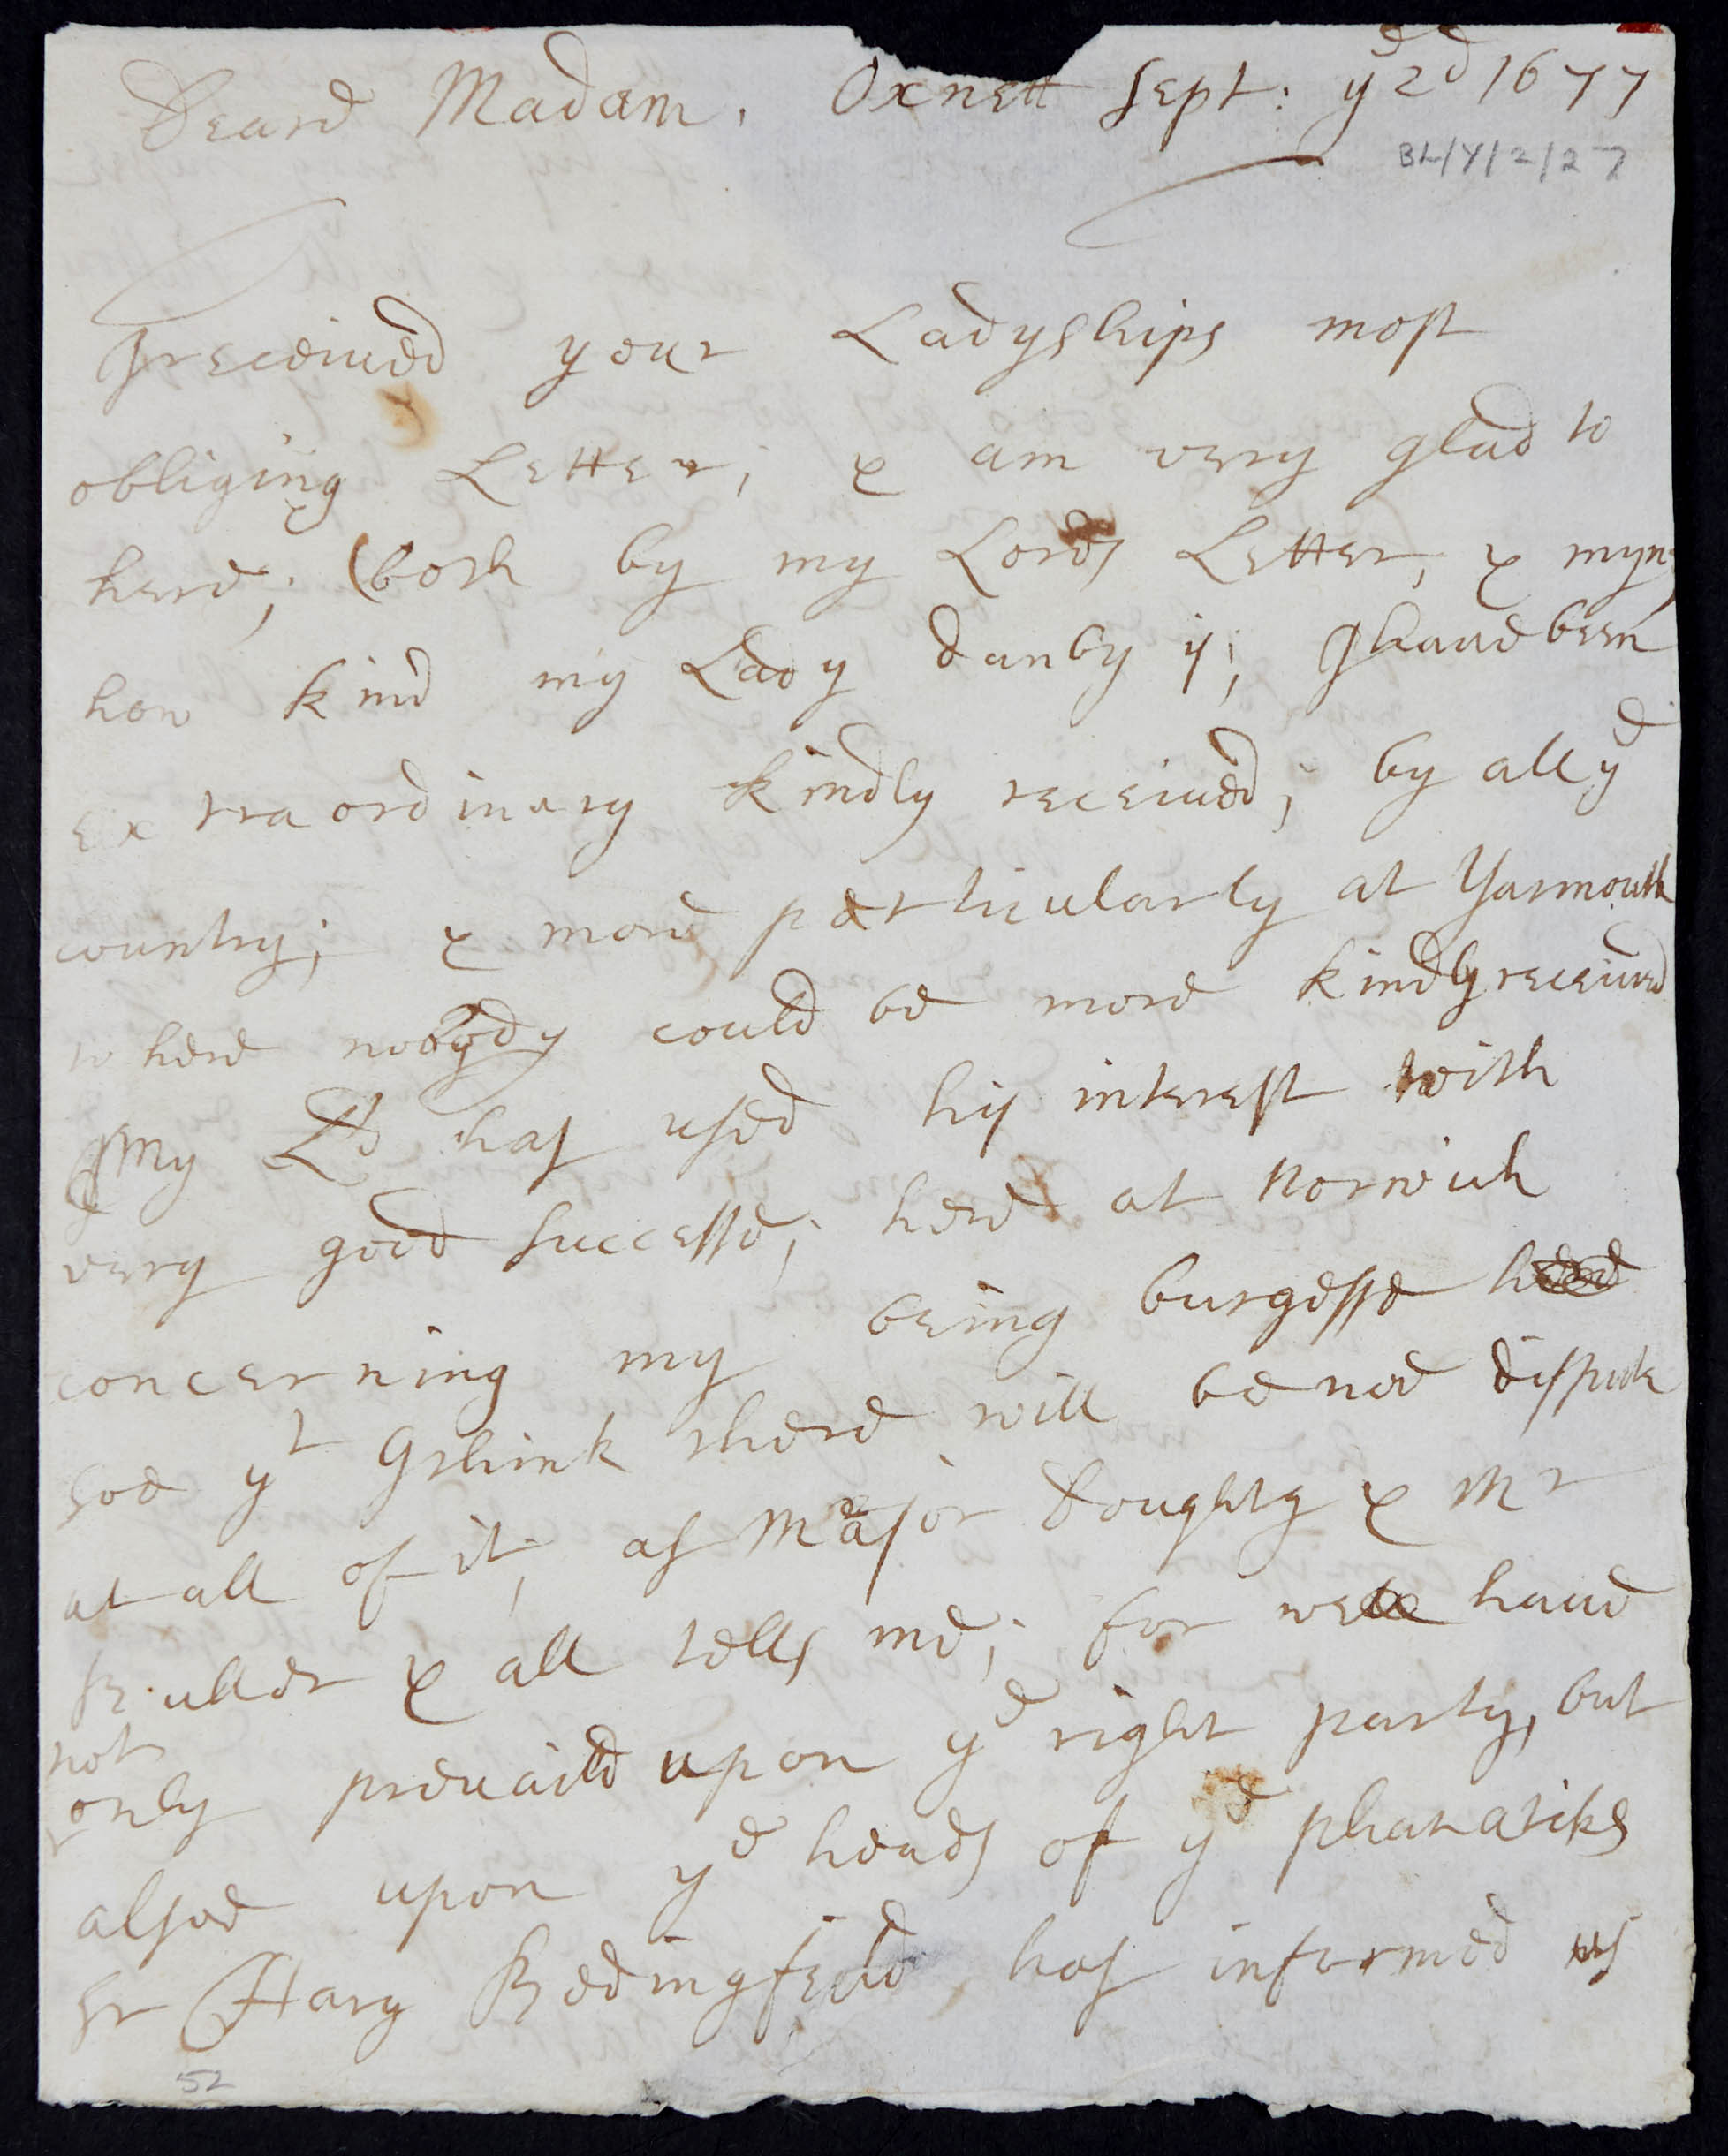 Deare Madam, Oxnett Sept: ye 2d 1677
BL/Y/2/27
I receiued your Ladyships most
obliging Letter; & am very glad to
here, (both by my Lords Letter, & myn)
how kind my Lady danby is; I haue been
extraordinary kindly receiued, by all ye
country; & more perticularly at Yarmouth
where nobody could be more kindly receiued
My Ld has used his interest with
very good successe; here at Norwich
concerning my being burgesse here
soe yt I think there will be noe dispute
at all of it, as Major Doughty & Mr
& all tells me; for wee haue
not
only preuaild upon ye right party, but
alsoe upon ye heads of ye phanatiks
Sr Hary Bedingfeild, has informed us
52